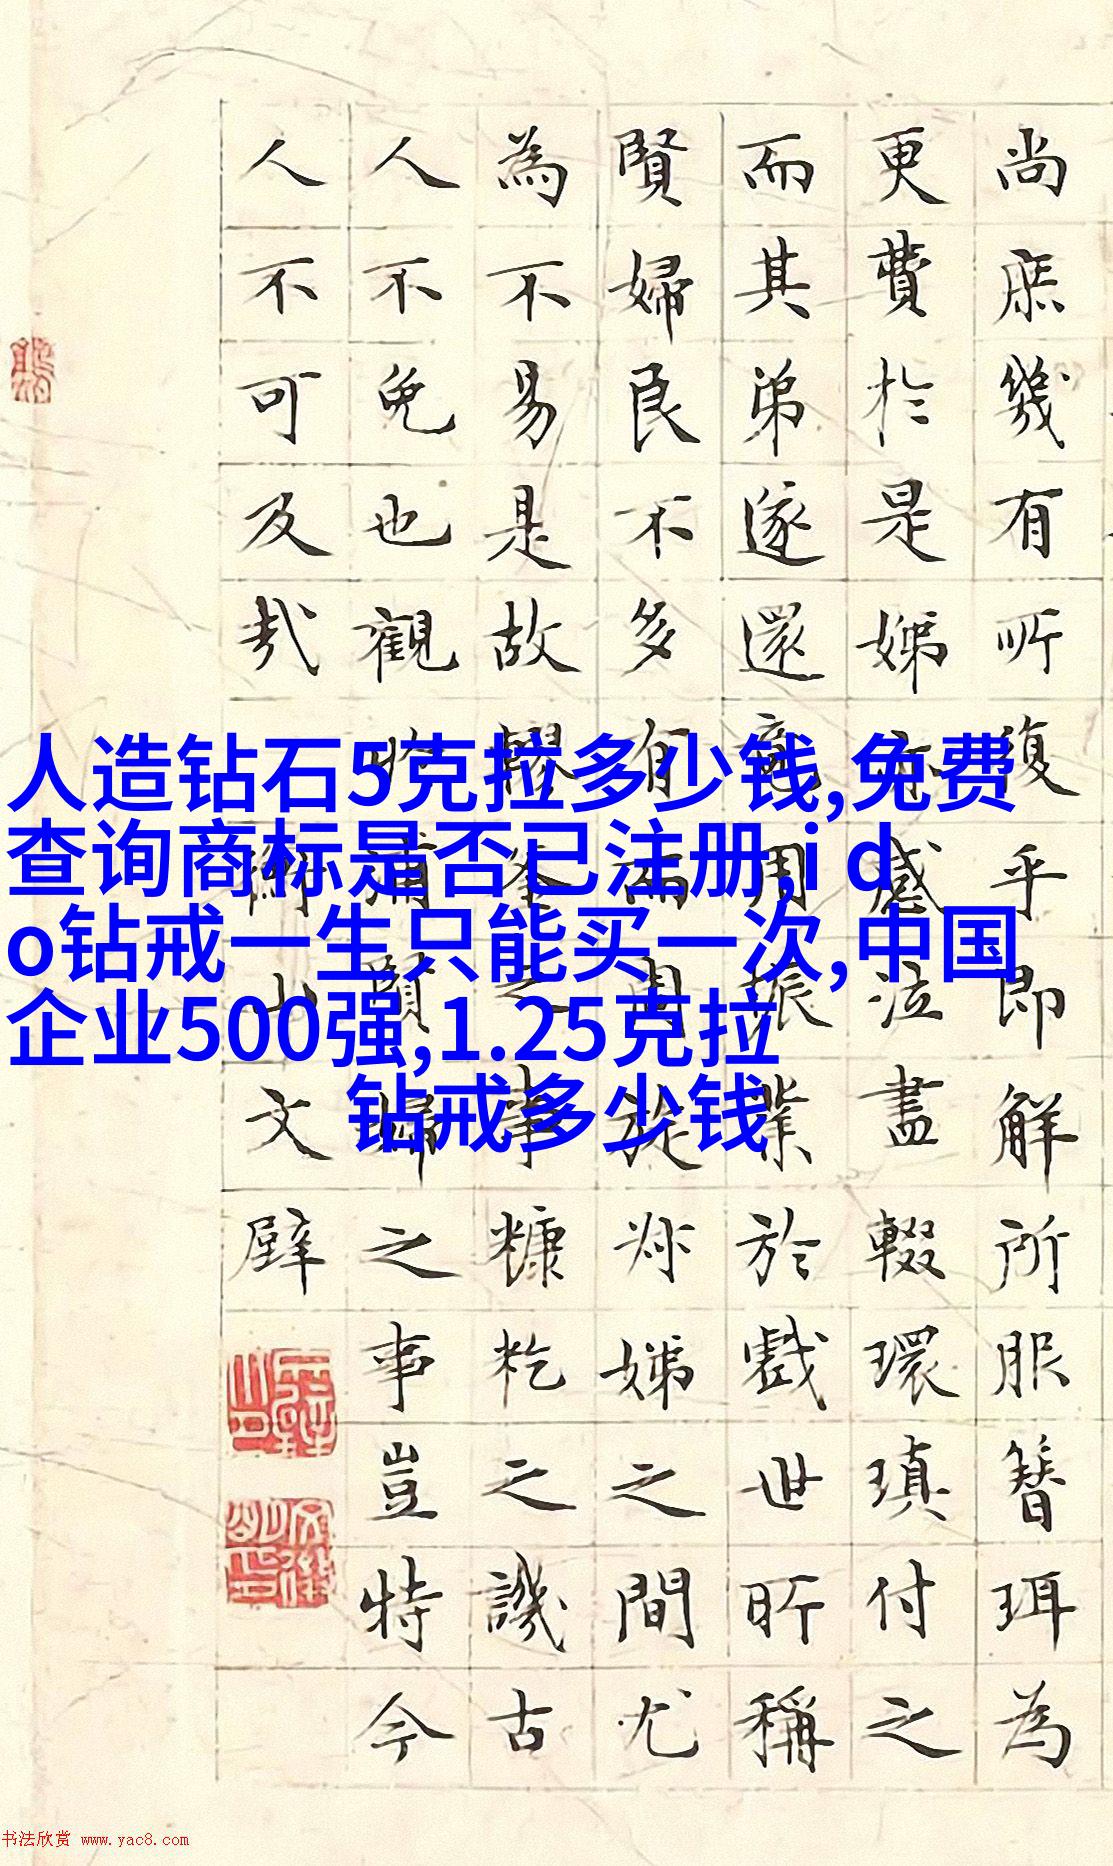 人造钻石5克拉多少钱,免费
查询商标是否已注册,i d
o钻戒一生只能买一次,中国
企业500强,1.25克拉
钻戒多少钱
尚庶幾有所復乎即解所服簪珥為
更費於是娣亦感泣盡輟環瑱付之
而其弟遂還竟用振業於戲世所稱
賢婦良不多有而周旋娣之間尤
為不易是故繆之事糠籺之譏古
人不免也觀於浦賢婦之事豈特今
人不可及哉
衡山文璧
书法欣赏 www.yac8.com